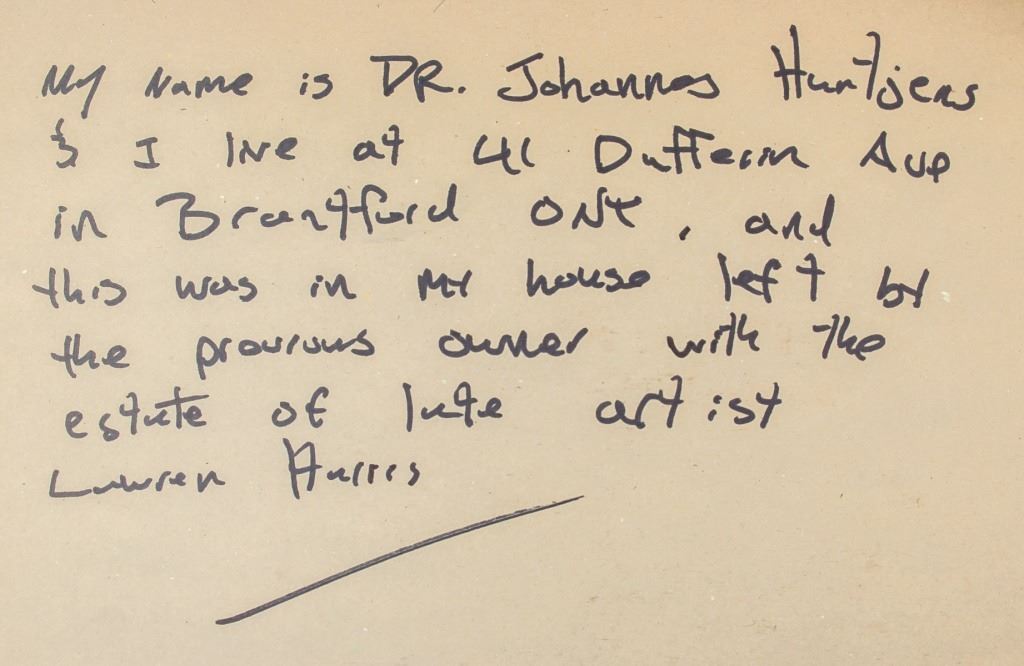 My Name is DR. Johannes Huntjens
& I live at 41 Dufferin Ave
in Brantford ONT, and
this was in my house left by
the previous owner with the
estate of late artist
Lawren Harris